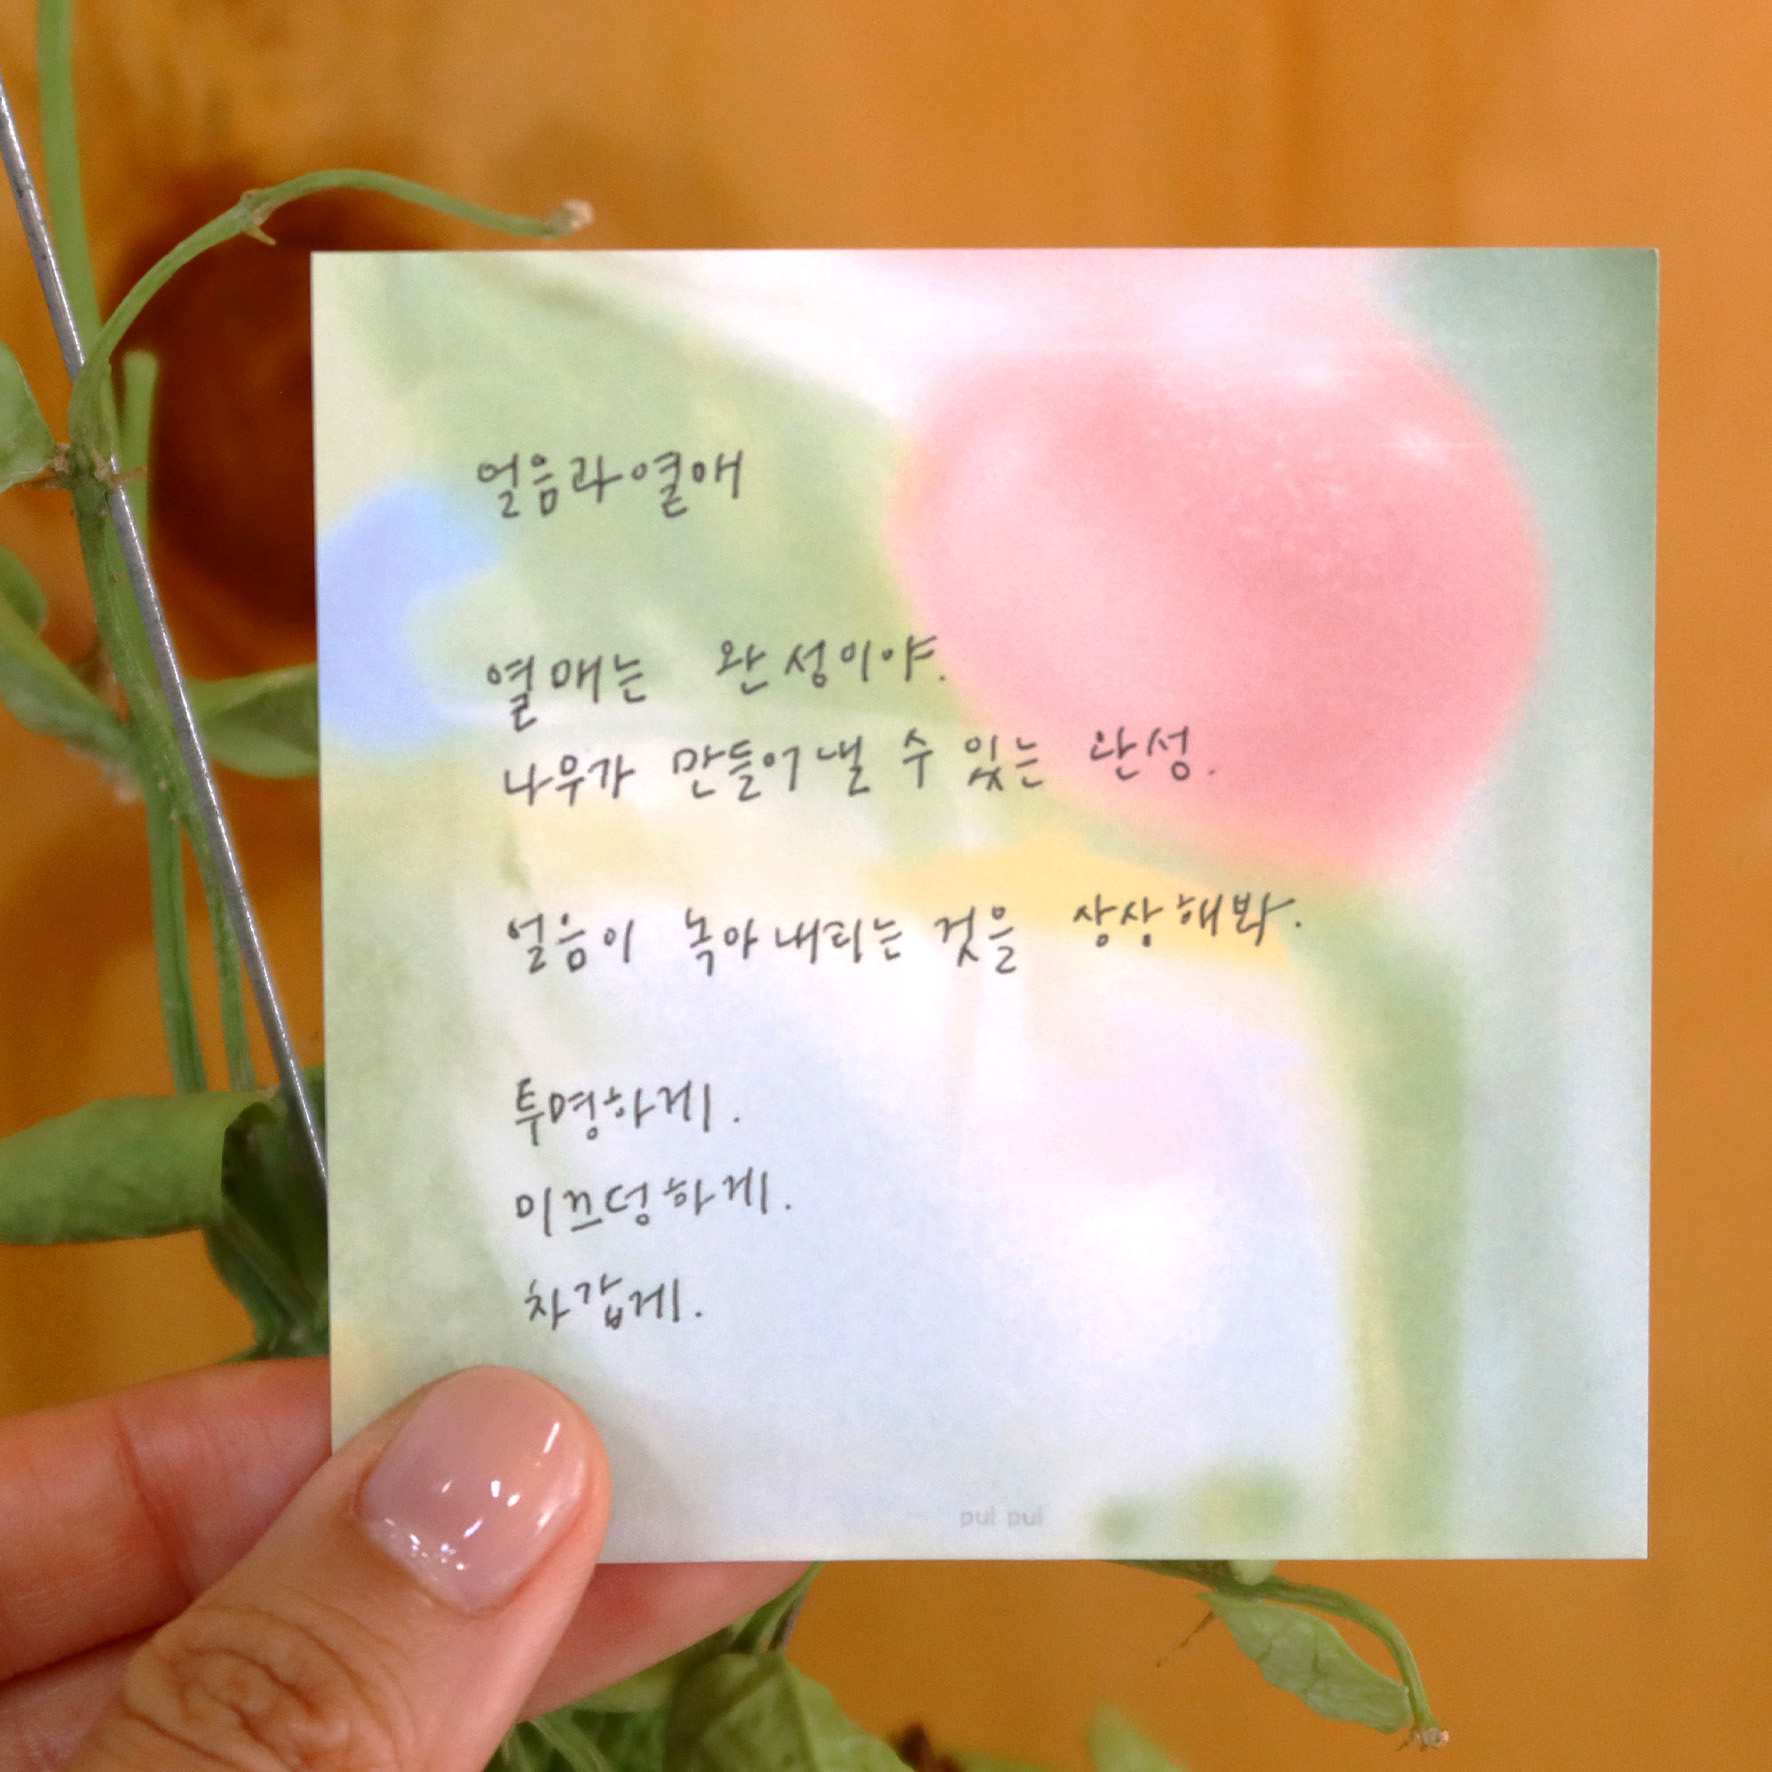 얼음과 열매
열매는 완성이야.
나무가 만들어 낼 수 있는 완성.
얼음이 녹아 내리는 것을 상상해봐.
투명하게.
미끄덩하게.
차갑게.
pui pui